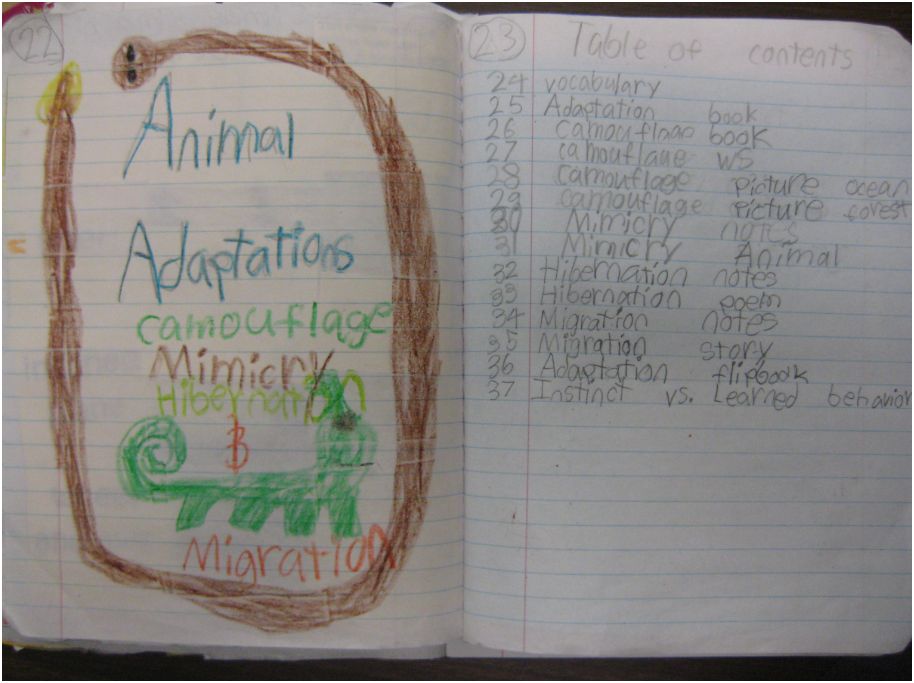 22
Animal
Adaptations
camouflage
Mimicry
Hibernation
Migration
23 Table of contents
24 vocabulary
25 Adaptation book
26 camouflage book
27 camouflage ws
28 camouflage picture ocean
29 camouflage picture forest
30 Mimicry notes
31 Mimicry Animal
32 Hibernation notes
33 Hibernation poem
34 Migration notes
35 Migration story
36 Adaptation flipbook
37 Instinct vs. Learned behavior